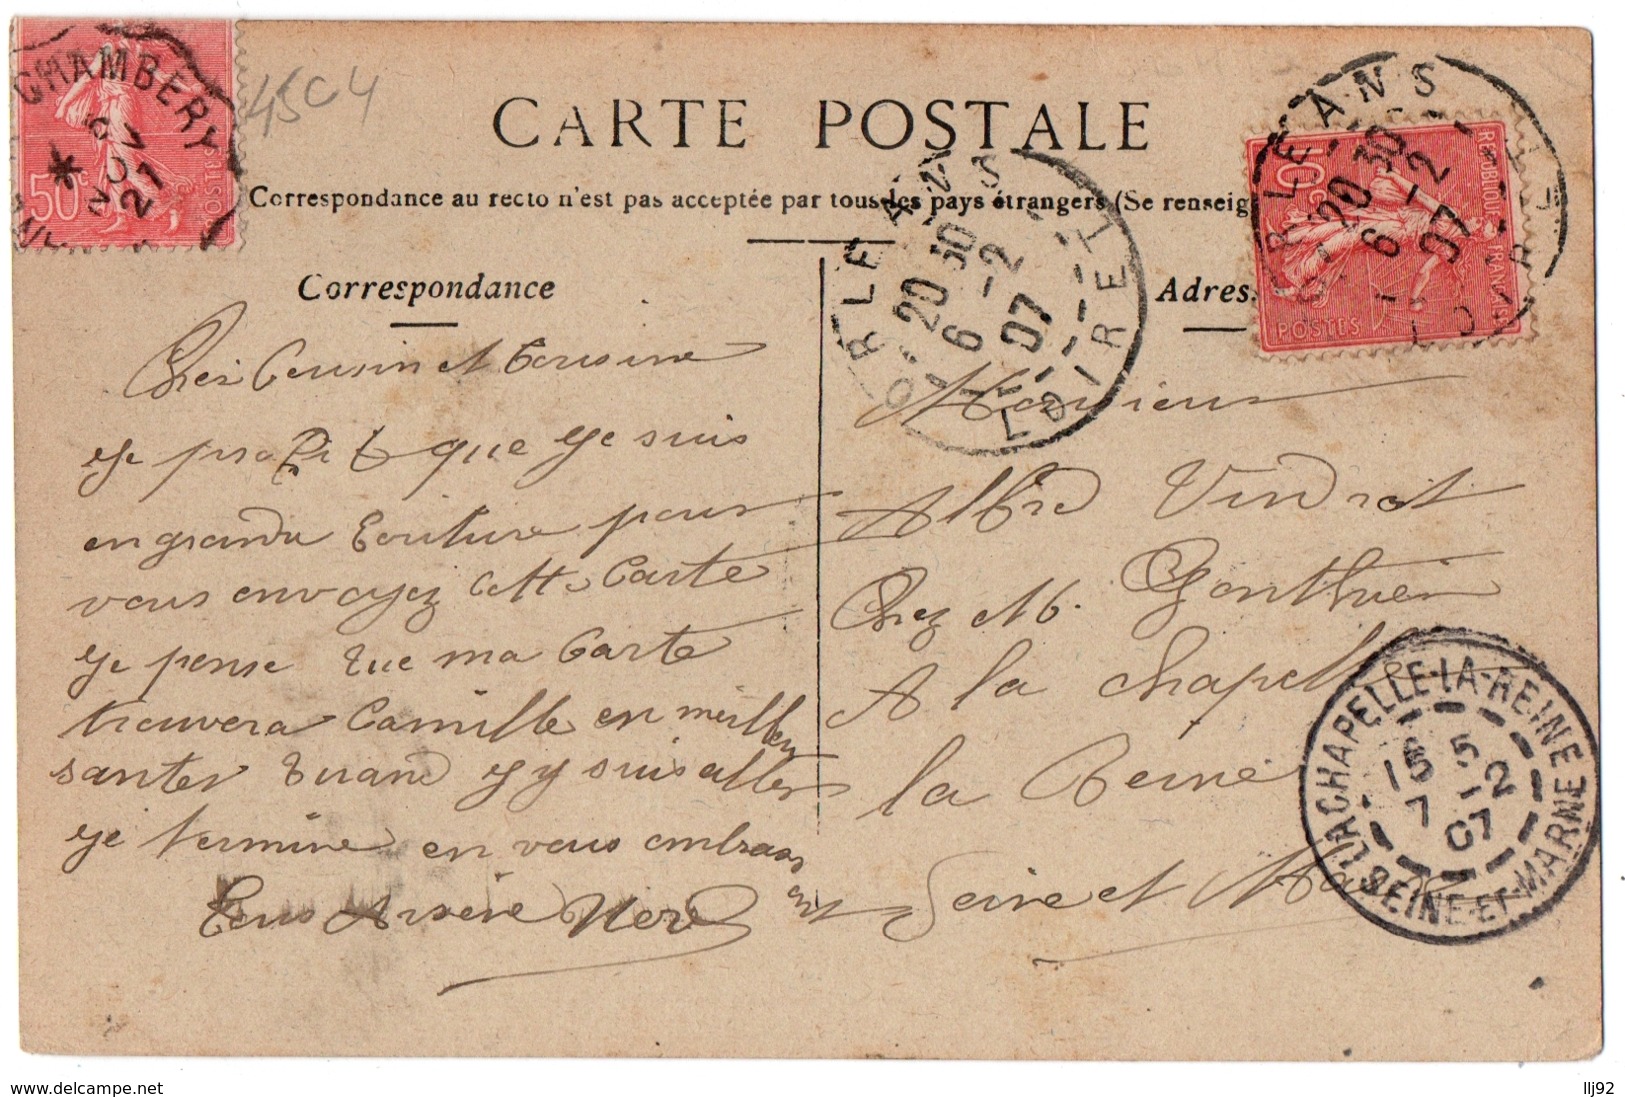 CHAMBERY
6
NOV
27
50c
POSTES
45C4
CARTE POSTALE
Correspondance au recto n'est pas acceptée par tous les pays étrangers (Se renseig
Correspondance
Adres
ORLEANS
20 30
6 -2
07
LOIRET
ORLEANS
20 30
6 -2
07
LOIRET
REPUBLIQUE FRANÇAISE
10c
POSTES
Cher Cousin et Cousine
Je profite que Je suis
en grande Ecriture pour
vous envoyez cette Carte
Je pense que ma Carte
trouvera Camille en meilleu
santer quand J y suis aller
Je termine en vous embrassant
Tous Arsène
Monsieur
Alfred Vindrot
Chez M. Gonthier
A la Chapelle
la Reine
Seine et Marne
LA CHAPELLE-LA-REINE
15 5
7 -2
07
SEINE-ET-MARNE
www.delcampe.net
llj92